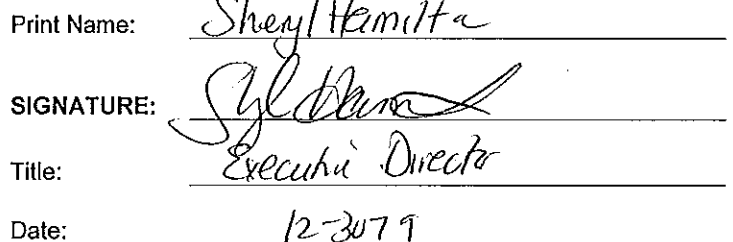 Print Name: Sheryl Hamilta
SIGNATURE:
Title: Executive Director
Date: 12-3079